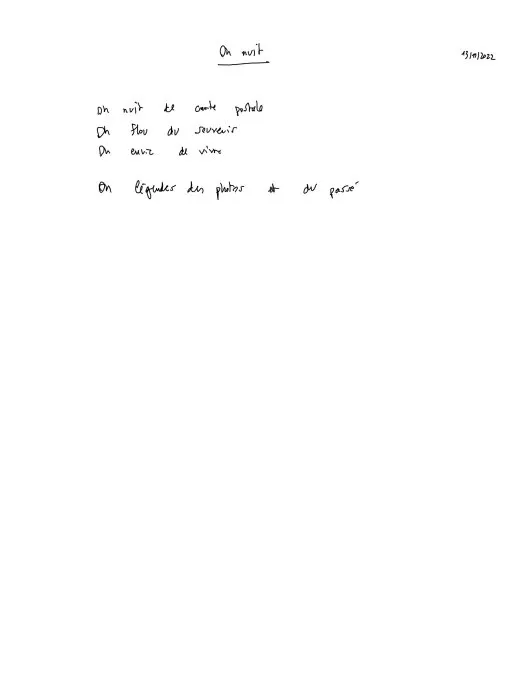 On nuit
13/11/2022
On nuit de carte postale
On flou du souvenir
On envie de vivre
On légendes des photos et du passé